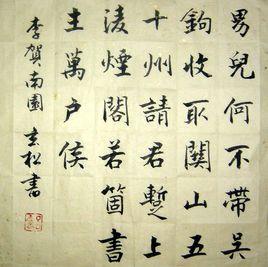 男兒何不帶吳
鉤收取關山五
十州請君暫上
淩煙閣若箇書
主萬戶侯
李賀南園 玄松書